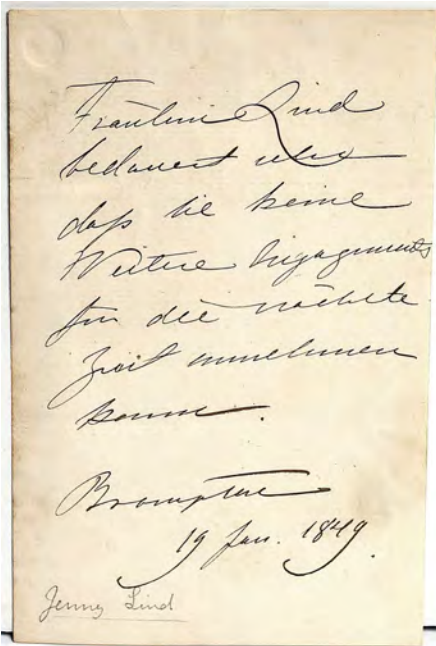 Fräulein Lind
bedauert sehr
daß sie keine
Weitere Engagements
für die nächste
Zeit annehmen
kann.
Brompton
19 Jan. 1849.
Jenny Lind